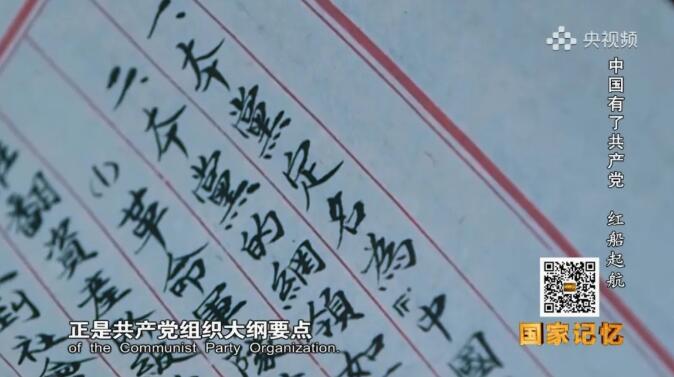 央视频
中国有了共产党 红船起航
一、本黨定名為「中國
二、本黨的綱領如
(1)革命軍隊
翻資産階級
到社會
正是共产党组织大纲要点
of the Communist Party Organization.
国家记忆